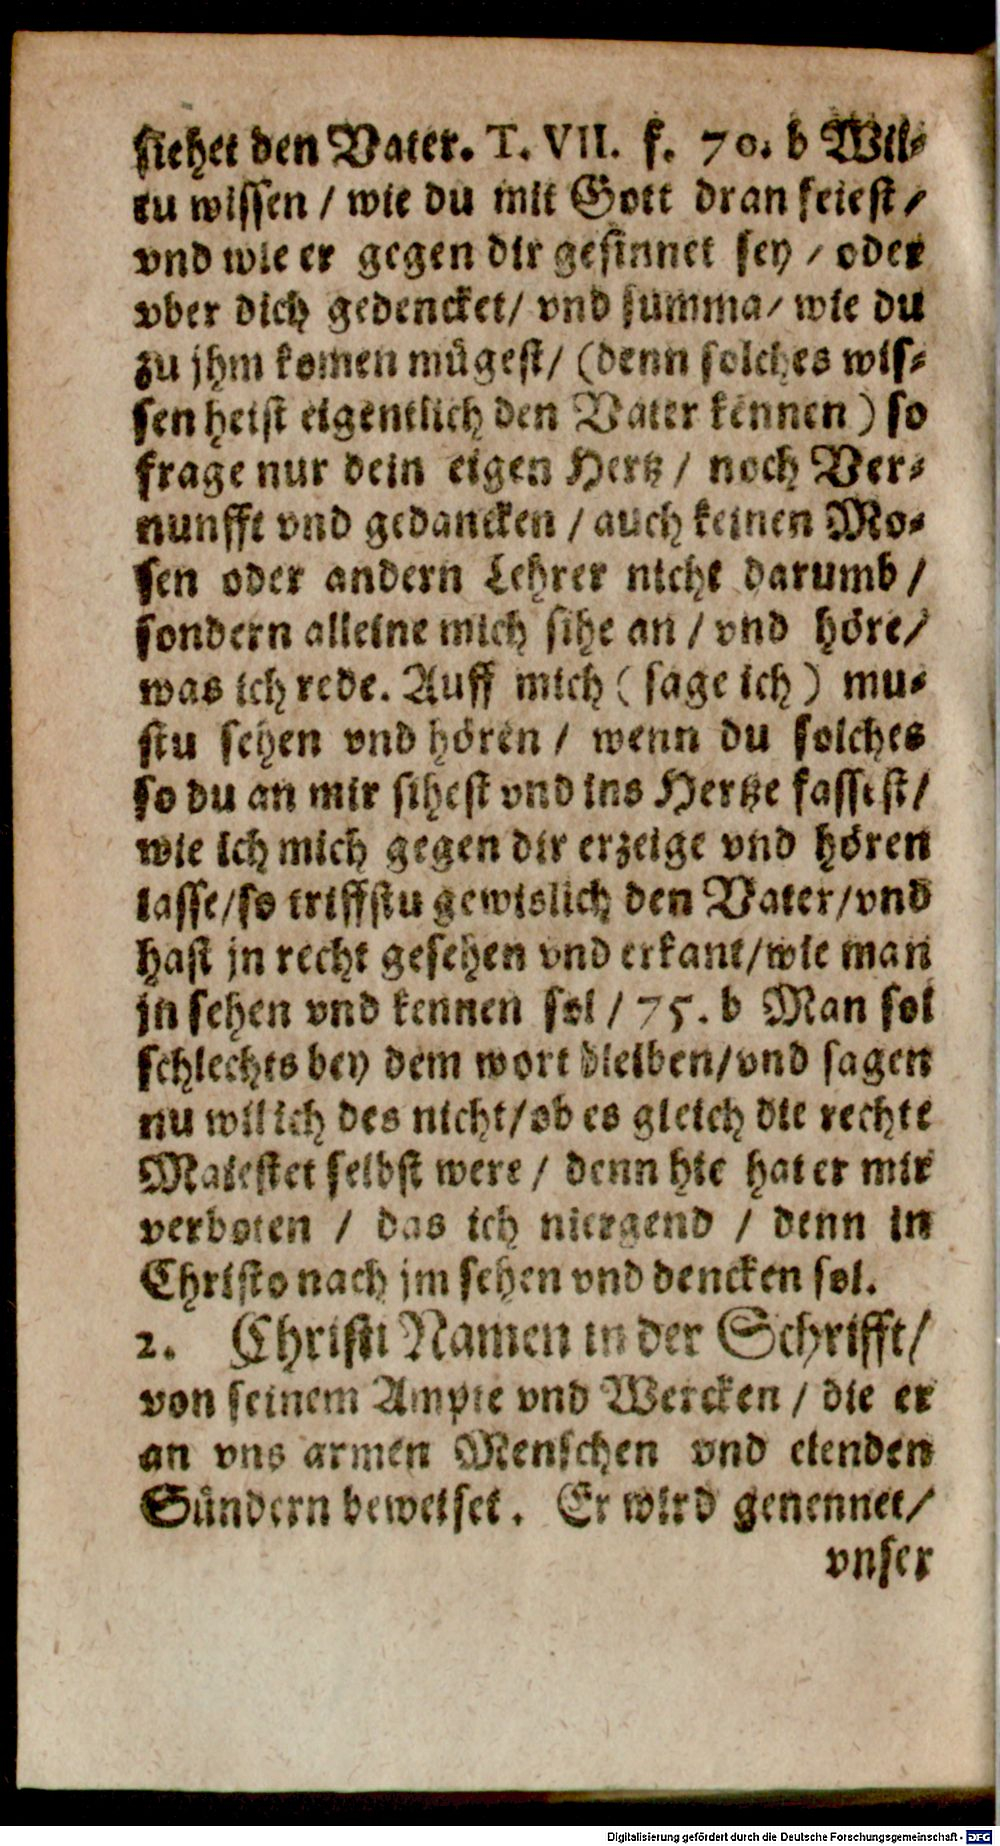 siehet den Vater. T. VII. f. 70. b Wil-
tu wissen / wie du mit Gott dran seiest /
vnd wie er gegen dir gesinnet sey / oder
vber dich gedencket / vnd summa / wie du
zu jhm komen mügest / (denn solches wis-
sen heist eigentlich den Vater kennen) so
frage nur dein eigen Hertz / noch Ver-
nunfft vnd gedancken / auch keinen Mo-
sen oder andern Lehrer nicht darumb /
sondern alleine mich sihe an / vnd höre /
was ich rede. Auff mich (sage ich) mu-
stu sehen vnd hören / wenn du solches
so du an mir sihest vnd ins Hertze fassest /
wie ich mich gegen dir erzeige vnd hören
lasse / so triffstu gewislich den Vater / vnd
hast jn recht gesehen vnd erkant / wie man
jn sehen vnd kennen sol / 75. b Man sol
schlechts bey dem wort bleiben / vnd sagen
nu wil ich des nicht / ob es gleich die rechte
Maiestet selbst were / denn hie hat er mir
verboten / das ich niergend / denn in
Christo nach jm sehen vnd dencken sol.
2. Christi Namen in der Schrifft /
von seinem Ampte vnd Wercken / die er
an vns armen Menschen vnd elenden
Sündern beweiset. Er wird genennet /
vnser
Digitalisierung gefördert durch die Deutsche Forschungsgemeinschaft - DFG